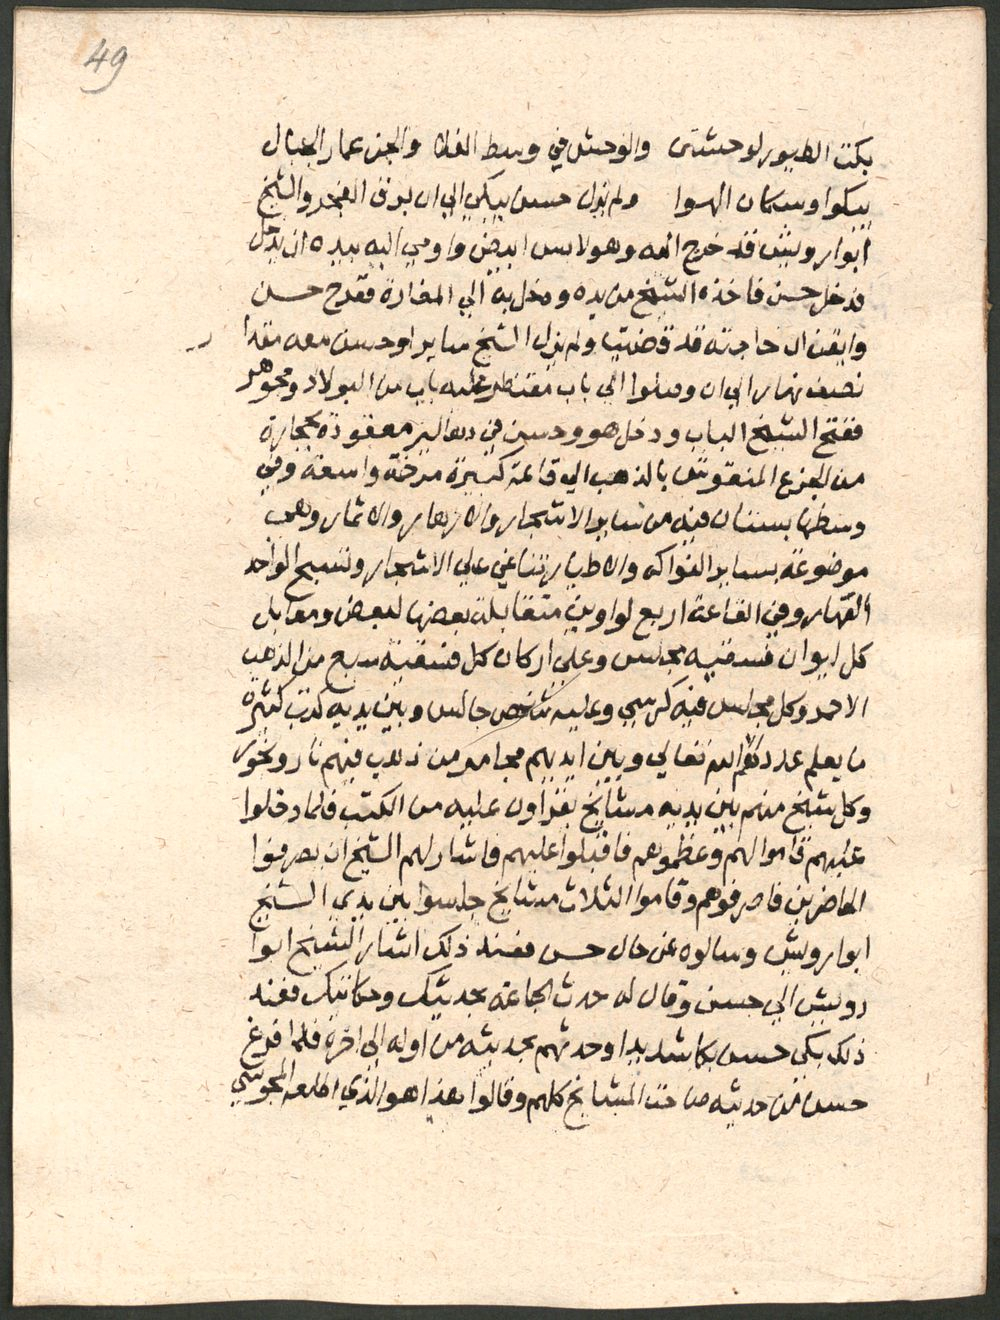 49
بكت الطيور لوحشتى والوحش في وسط الفلا والجن عمار الجبال
يبكوا وسكان الهوا ولم يزل حسن يبكي الي ان برق الفجر والشيخ
ابوا رويش قد خرج اليه وهو لابس ابيض واومي اليه بيده ان يدخل
فدخل حسن فاخذه الشيخ من يده ودخل به الي المغارة ففرح حسن
وايقن ان حاجته قد قضيت ولم يزل الشيخ ساير او حسن معه مقدار
نصف نهار الي ان وصلوا الي باب مقنطر عليه باب من البولاد ومجوهر
ففتح الشيخ الباب ودخل هو وحسن في دهاليز معقودة بحجارة
من الجزع المنقوش بالذهب الي قاعة كبيرة مرخمة واسعة وفي
وسطها بستان فيه من ساير الاشجار والازهار والاثمار وهي
موضوعة بساير الفواكه والاطيار تناغي علي الاشجار وتسبح الواحد
القهار وفي القاعة اربع لواوين متقابلة بعضها لبعض ومقابل
كل ايوان فسقيه مجلس وعلي اركان كل فسقية سبع من الذهب
الاحمر وكل مجلس فيه كرسي وعليه شخص جالس وبين يديه كتب كثيرة
ما يعلم عددهم الله تعالي وبين ايديهم مجامر من ذهب فيهم نار وبخور
وكل شيخ منهم بين يديه مشايخ يقراون عليه من الكتب فلما دخلوا
عليهم قاموا لهم وعظموهم فاقبلوا عليهم فاشار لهم الشيخ ان يصرفوا
الحاضرين فاصرفوهم وقاموا الثلاث مشايخ جلسوا بين يدي الشيخ
ابوا رويش وسالوه عن حال حسن فعند ذلك اشار الشيخ ابوا
رويش الي حسن وقال له حدث الجماعه بحديثك وحكايتك فعند
ذلك بكي حسن بكا شديدا وحدثهم بحديثه من اوله الي اخره فلما فرغ
حسن من حديثه صاحت المشايخ كلهم وقالوا هذا هو الذي اطلعه المجوسي